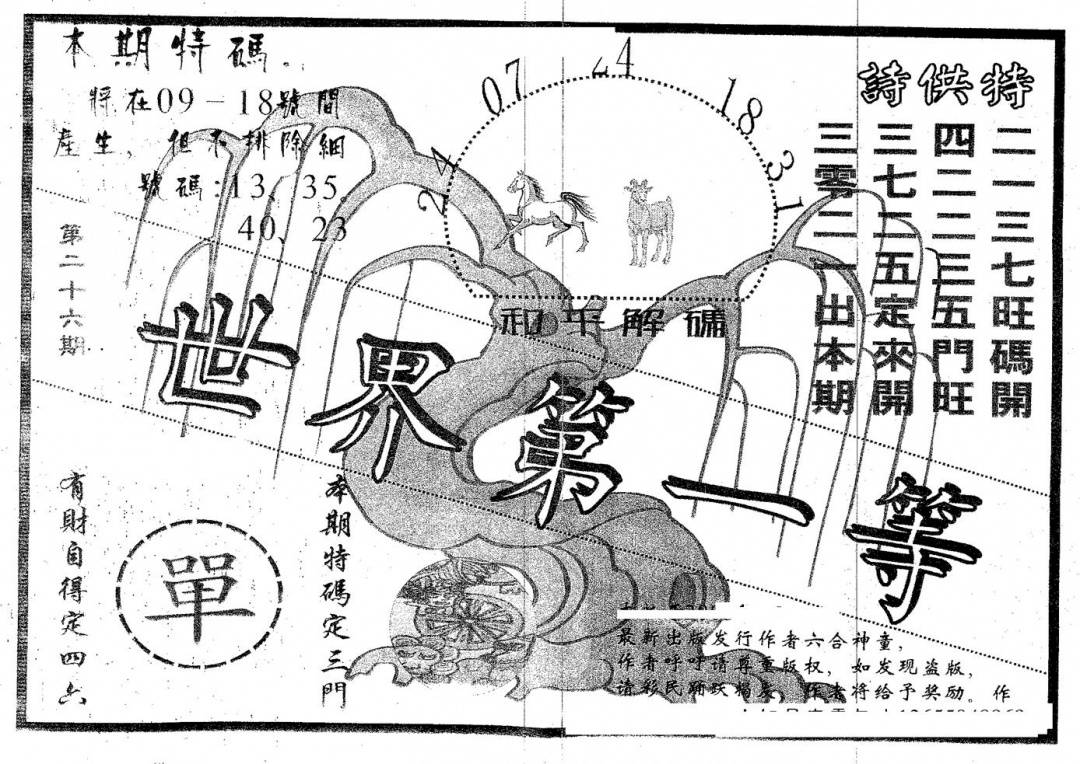 本期特碼。
將在09－18號間
產生，但不排除細
號碼:13、35、
40、23
第二十六期
24
07
24
18
31
和平解碼
特供詩
二一三七旺碼開
四二二三五門旺
三七二五定來開
三零二一出本期
世界第一等
有財自得定四六
單
本期特碼定三門
最新出版发行作者六合神童，
作者呼吁请尊重版权，如发现盗版，
请彩民踊跃揭发，作者将给予奖励。作